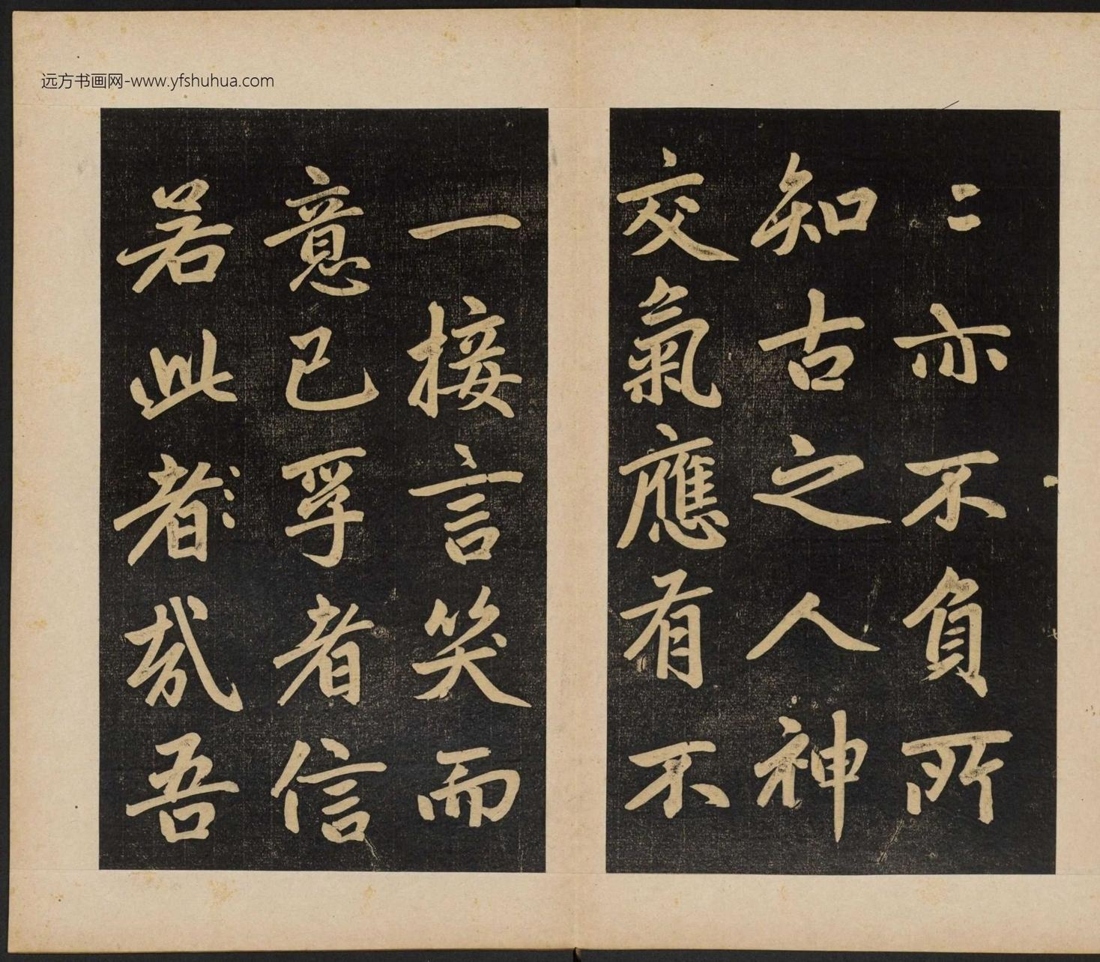 远方书画网-www.yfshuhua.com
〻亦不負所
知古之人神
交氣應有不
一接言笑而
意已孚者信
若此者哉吾